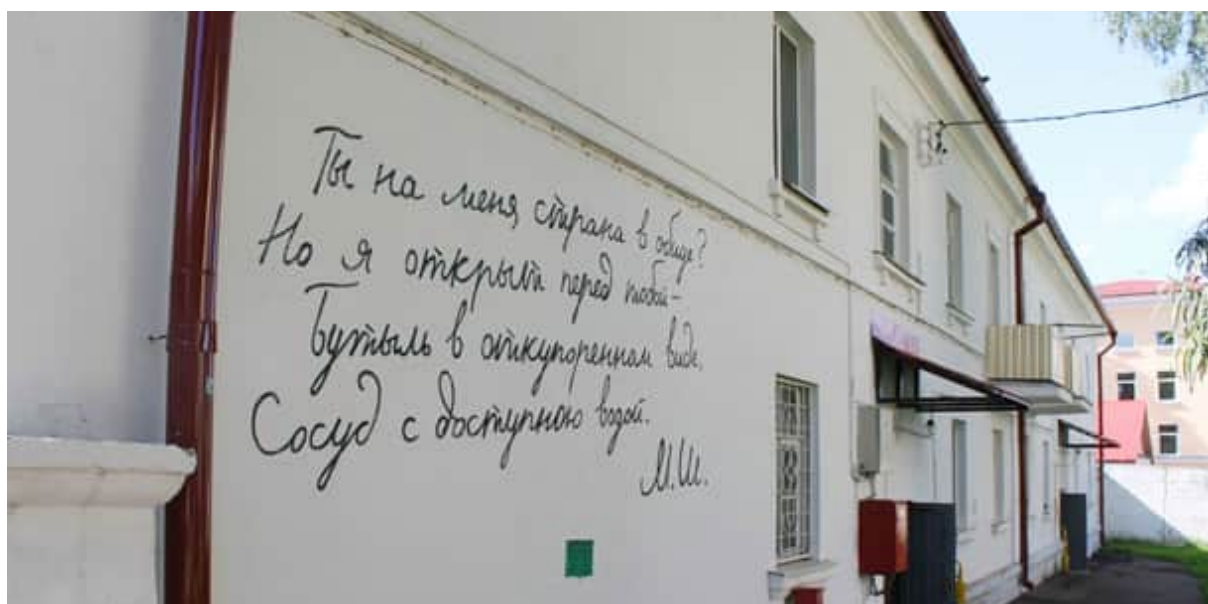 Ты на меня, страна в обиде?
Но я открыт перед тобой-
Бутыль в откупоренном виде.
Сосуд с доступною водой.
М.Ш.